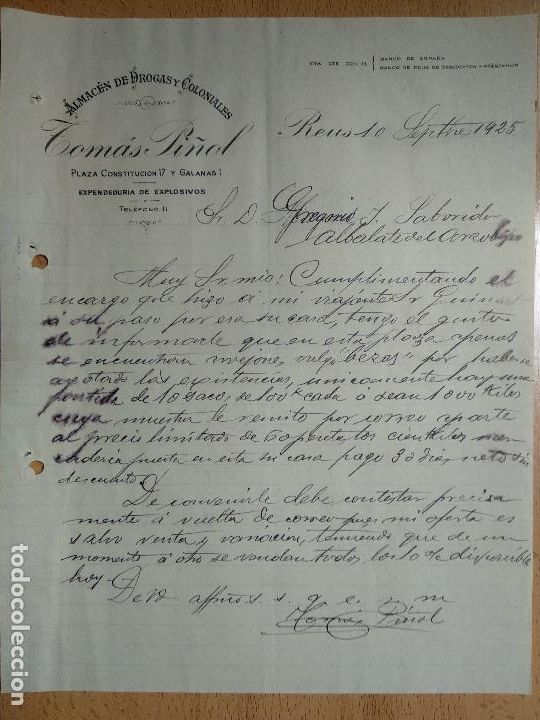 CTA CTE CON EL BANCO DE ESPAÑA
BANCO DE REUS DE DESCUENTOS Y PRÉSTAMOS
ALMACÉN DE DROGAS Y COLONIALES
Tomás Piñol
PLAZA CONSTITUCIÓN 17 Y GALANAS 1
EXPENDEDURIA DE EXPLOSIVOS
TELÉFONO 11
Reus 10 Septbre 1925
Sr. D. Gregorio J. Saborido
Albalate del Arzobispo
Muy Sr. mio: Cumplimentando el
encargo que hizo á mi viajante Sr
á su paso por esa su casa, tengo el gusto
de informarle que en esta plaza apenas
se encuentran vulgo "bezas" por haberse
agotado las existencias, unicamente hay una
partida de 10 sacos de 100 K cada ó sean 1000 Kilos
cuya muestra le remito por correo aparte
al precio limitado de 60 pesetas los cien Kilos mer-
cadería puesta en esta su casa pago 30 dias neto sin
descuento.
De convenirle debe contestar precisa
mente á vuelta de correo pues mi oferta es
salvo venta y variacion, temiendo que de un
momento á otro se vendan todos los 10 % disponible
hoy.
De V. affmo. s. s. q. e. s. m
Tomás Piñol
todocoleccion